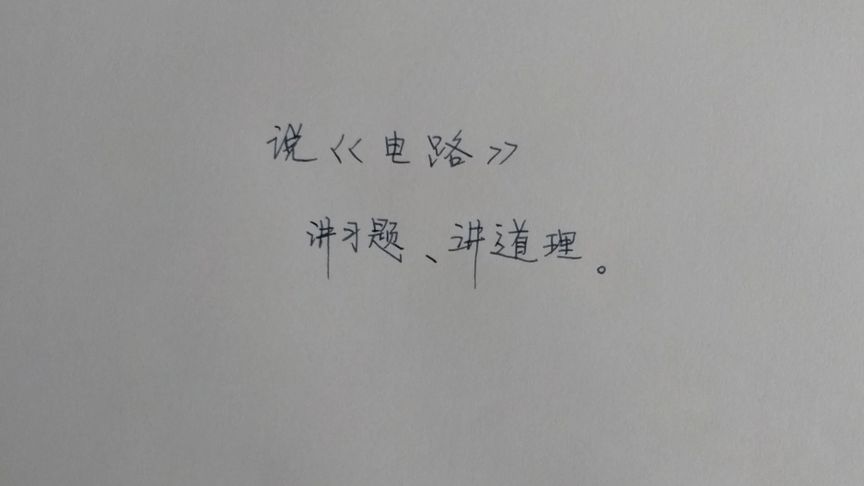 说《电路》
讲习题、讲道理。